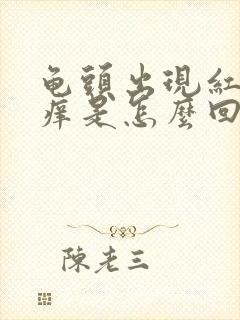 龟頭出現紅
痒是怎麼回
陳老三